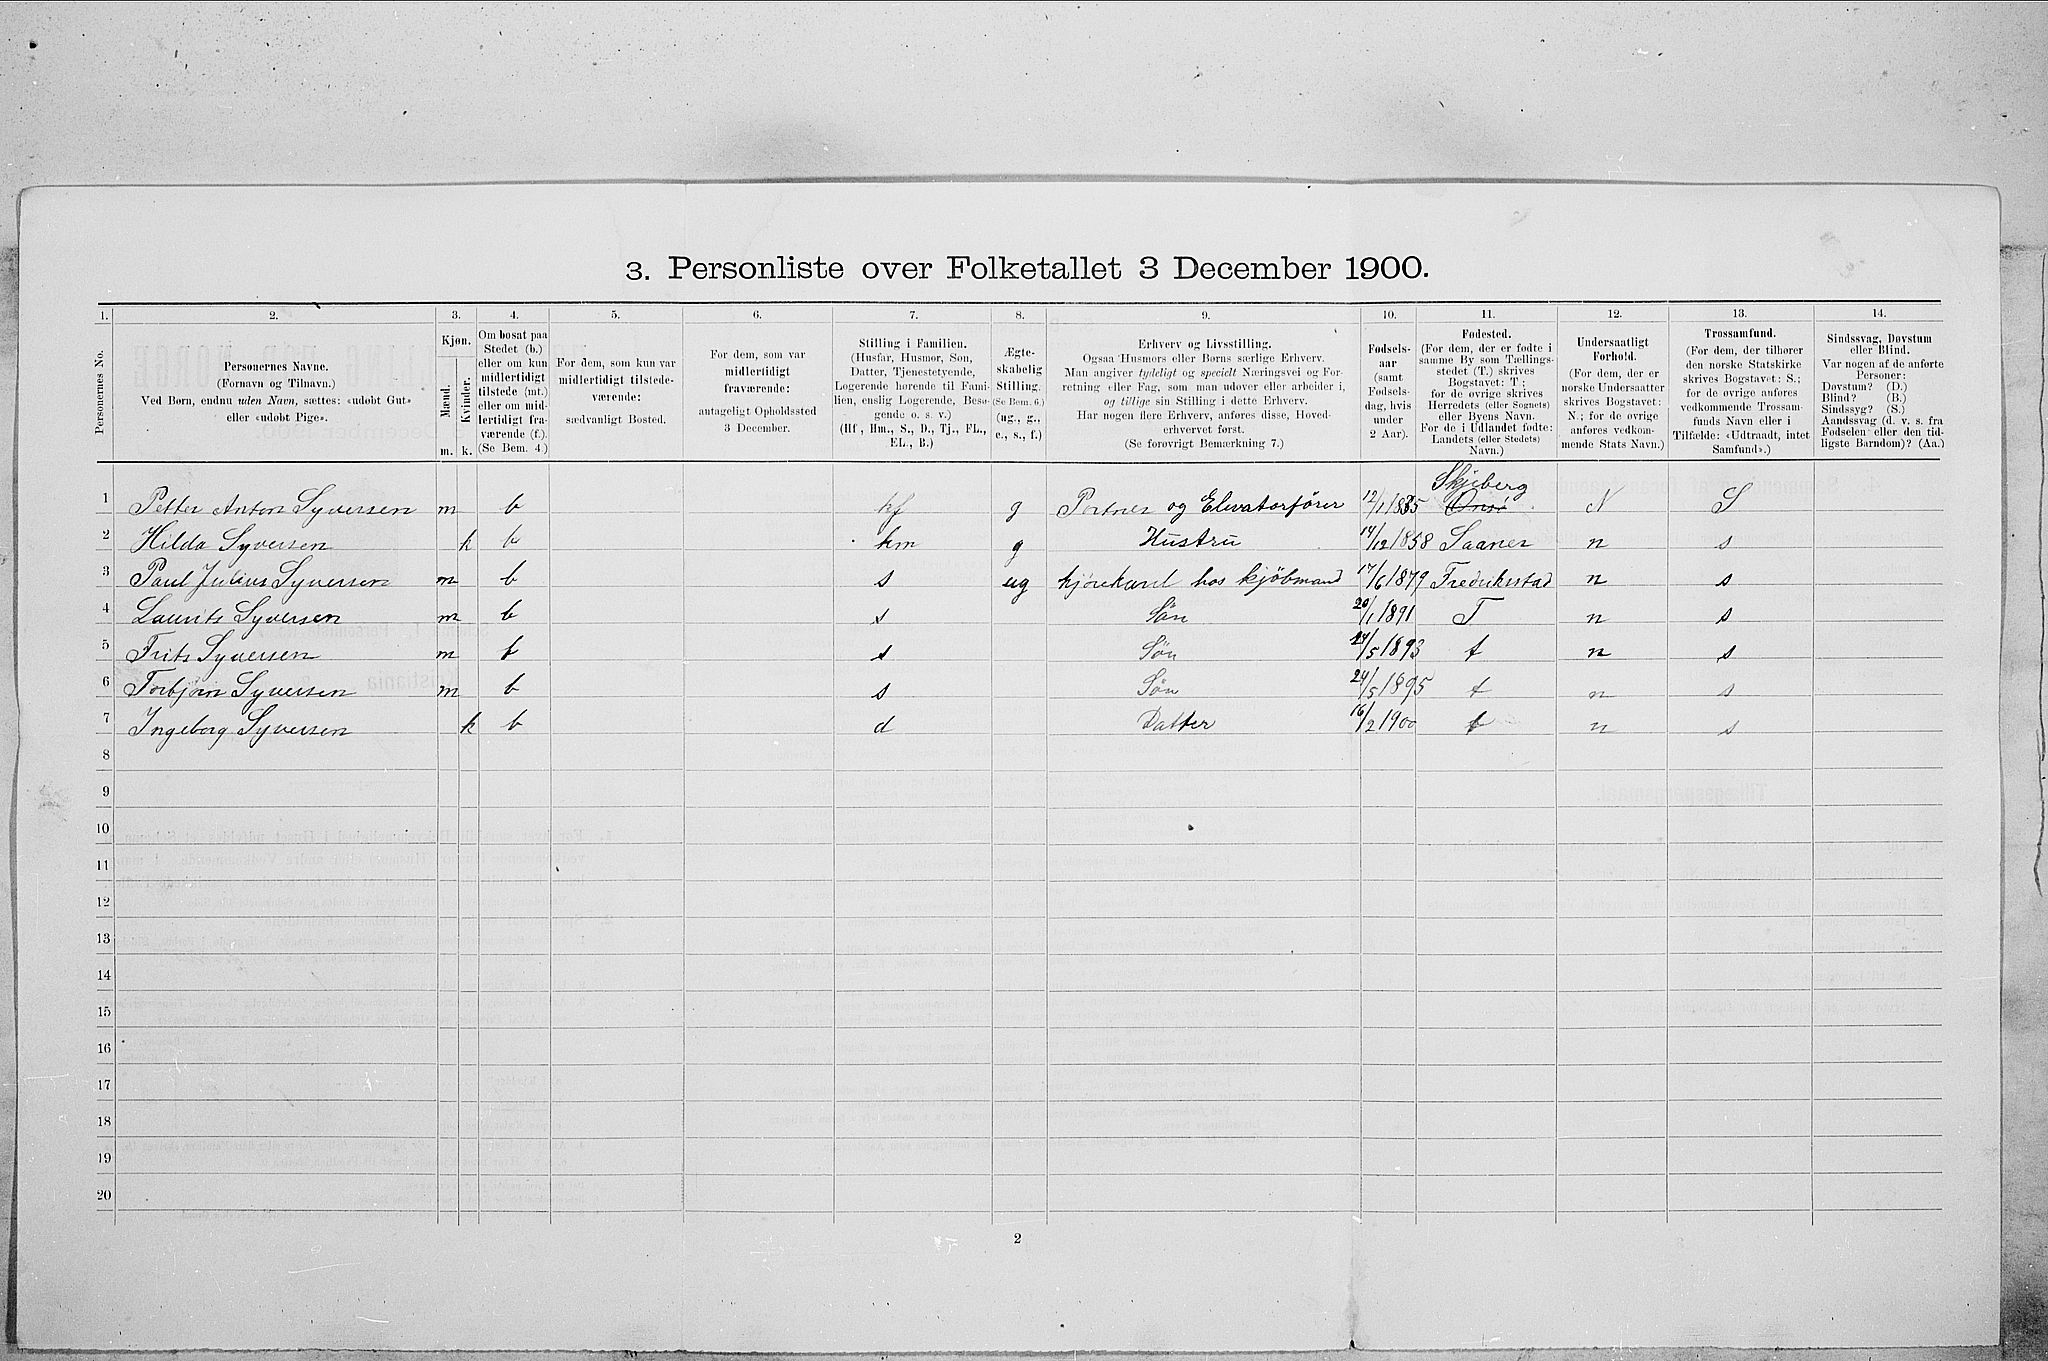 3. Personliste over Folketallet 3 December 1900.
1. 2. 3. 4. 5. 6. 7. 8. 9. 10. 11. 12. 13. 14.
Personernes No.
Personernes Navne.
(Fornavn og Tilnavn.)
Ved Børn, endnu uden Navn, sættes: «udøbt Gut»
eller «udøbt Pige».
Kjøn.
Mænd.
Kvinder.
m. k.
Om bosat paa
Stedet (b.)
eller om kun
midlertidigt
tilstede (mt.)
eller om mid-
lertidigt fra-
værende (f.)
(Se Bem. 4.)
For dem, som kun var
midlertidigt tilstede-
værende:
sædvanligt Bosted.
For dem, som var
midlertidigt
fraværende:
antageligt Opholdssted
3 December.
Stilling i Familien.
(Husfar, Husmor, Søn,
Datter, Tjenestetyende,
Logerende hørende til Fami-
lien, enslig Logerende, Besø-
gende o. s. v.)
(Hf, Hm., S., D., Tj., FL.,
EL., B.)
Ægte-
skabelig
Stilling.
(Se Bem. 6.)
(ug., g.,
e., s., f.)
Erhverv og Livsstilling.
Ogsaa Husmors eller Børns særlige Erhverv.
Man angiver tydeligt og specielt Næringsvei og For-
retning eller Fag, som man udøver eller arbeider i,
og tillige sin Stilling i dette Erhverv.
Har nogen flere Erhverv, anføres disse, Hoved-
erhvervet først.
(Se forøvrigt Bemærkning 7.)
Fødsels-
aar
(samt
Fødsels-
dag, hvis
under
2 Aar).
Fødested.
(For dem, der er fødte i
samme By som Tællings-
stedet (T.) skrives
Bogstavet: T;
for de øvrige skrives
Herredets (eller Sognets)
eller Byens Navn.
For de i Udlandet fødte:
Landets (eller Stedets)
Navn.)
Undersaatligt
Forhold.
(For dem, der er
norske Undersaatter
skrives Bogstavet:
N.; for de øvrige
anføres vedkom-
mende Stats Navn.)
Trossamfund.
(For dem, der tilhører
den norske Statskirke
skrives Bogstavet: S.;
for de øvrige anføres
vedkommende Trossam-
funds Navn eller i
Tilfælde: «Udtraadt, intet
Samfund».)
Sindssvag, Døvstum
eller Blind.
Var nogen af de anførte
Personer:
Døvstum? (D.)
Blind? (B.)
Sindssyg? (S.)
Aandssvag (d. v. s. fra
Fødselen eller den tid-
ligste Barndom)? (Aa.)
Skjeberg
1 Petter Anton Syversen m b hf g Portner og Elevatorfører 12/1 1835 Onsø N S
2 Hilda Syversen k b hm g Hustru 14/12 1858 Saaner n s
3 Paul Julius Syversen m b s ug kjørekarel hos kjøbmand 17/6 1879 Fredriksstad n s
4 Laurits Syversen m b s Søn 20/1 1891 T n s
5 Frits Syversen m b s Søn 24/5 1893 t n s
6 Torbjørn Syversen m b s Søn 24/5 1895 t n s
7 Ingeborg Syversen k b d Datter 16/2 1900 t n s
8
9
10
11
12
13
14
15
16
17
18
19
20
2